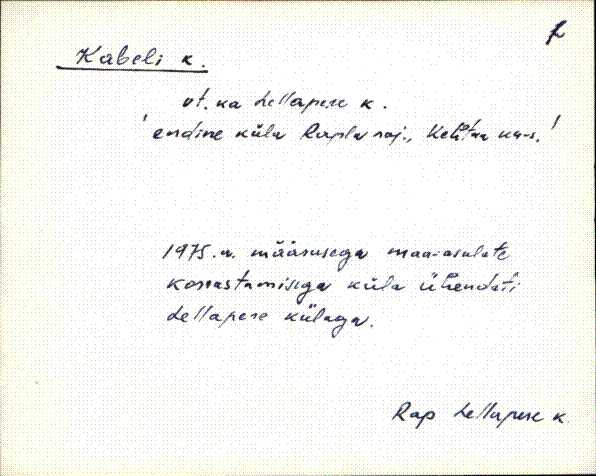 Kabeli k.
vt. ka Lellapere k.
'endine küla Rapla raj., Kehtna k-n.'
1975.a. määrusega maa-asulate
korrastamisega küla ühendati
Lellapere külaga.
Rap Lellapere k.